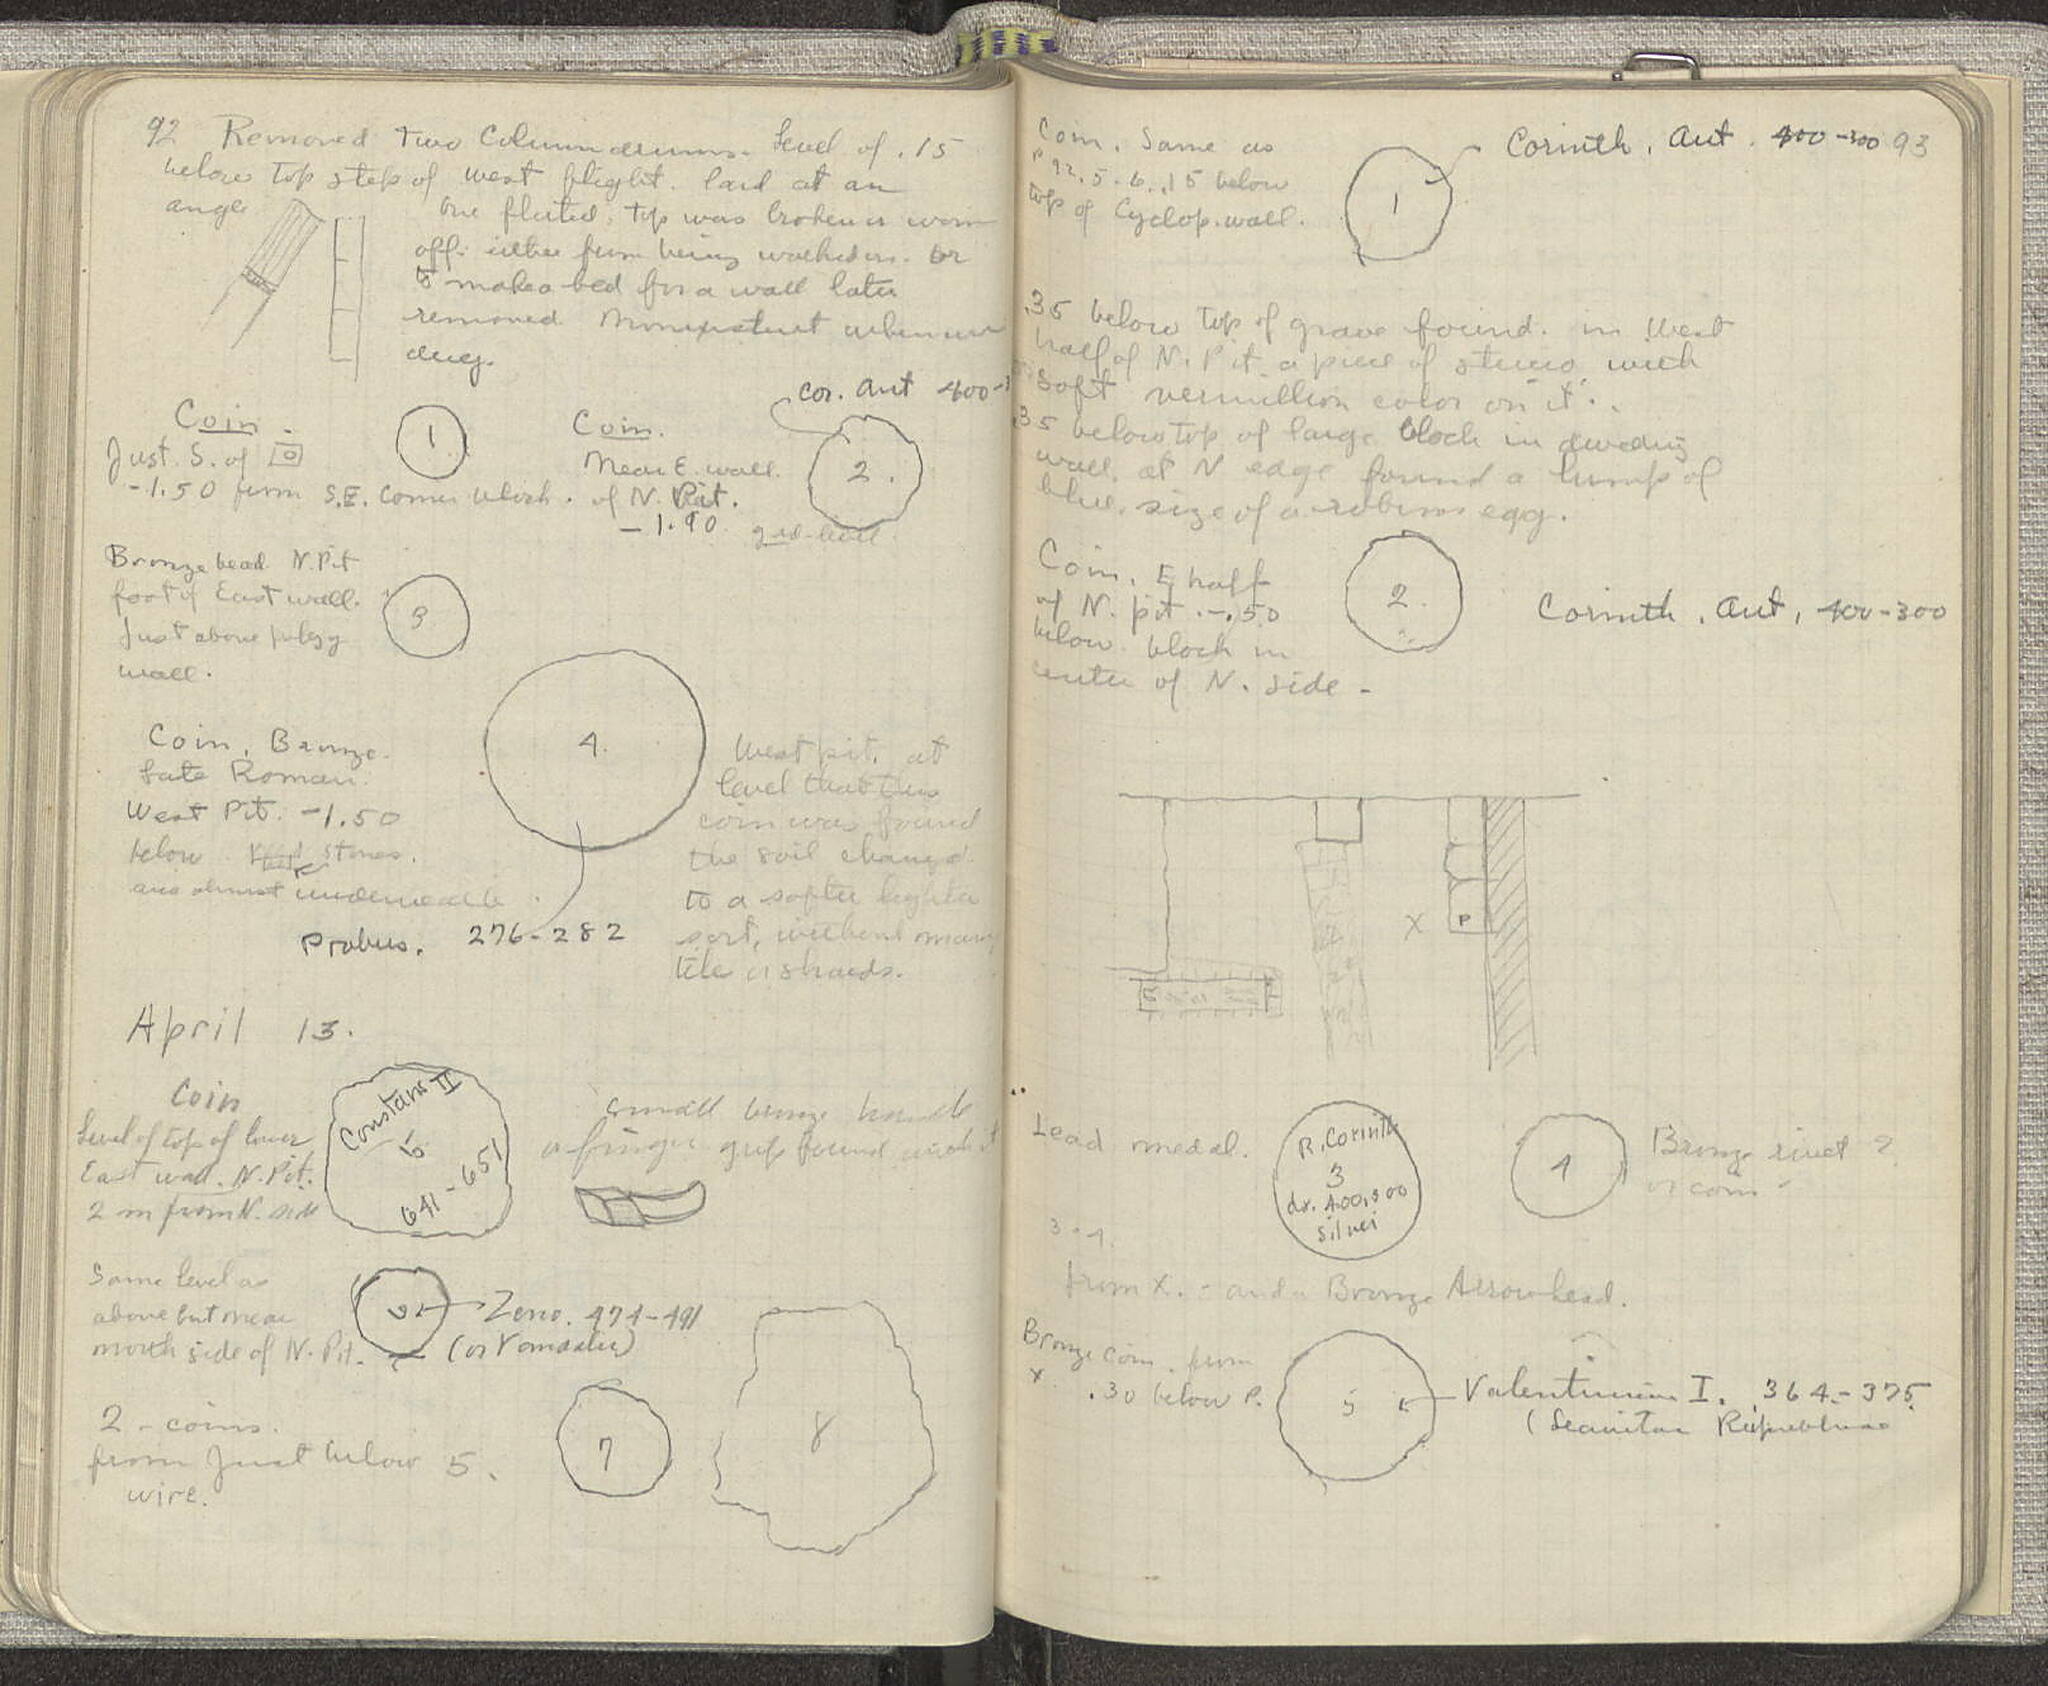 92 Removed two Column drums. Level of .15
below top step of West flight. laid at an
angle
One fluted, top was broken or worn
off: either from being walked on. Or
to make a bed for a wall later
removed. Nonexistent when we
dug.
Cor. Aut 400-3
Coin.
Just. S. of
-1.50 from S.E. Corner block.
1
Coin.
Near E. wall.
of N. Pit.
-1.90.
2.
Bronze bead. N. Pit
foot of East wall.
Just above
wall.
3
Coin, Bronze.
Late Roman.
West Pit. -1.50
below stones.
and almost underneath
4.
Probus. 276-282
West pit. at
level that this
coin was found
the soil changed
to a softer lighter
sort, without many
tile or shards.
April 13.
Coin
Level of top of lower
East wall. N. Pit.
2 m from N. side
Constans II
6
641-651
Small bronze handle
a finger grip found with it
Same level as
above but near
north side of N. Pit.
Zeno. 474-491
2 - coins.
from Just below 5.
wire.
7
8
93
Coin. Same as
P 92. 5-6. .15 below
top of Cyclop. wall.
1
Corinth, Aut. 400-300
.35 below top of grave found. in West
half of N. Pit a piece of stucco with
soft vermillion color on it.
.35 below top of large block in dividing
wall at N edge found a lump of
blue, size of a robins egg.
Coin, E half
of N. pit. -.50
below block in
center of N. side -
2.
Corinth, Aut, 400-300
P
X
Lead medal.
R. Corinth
3
dr. 400,300
silver
4
Bronze rivet?
or coin -
3-4.
from X. - and a Bronze Arrowhead.
Bronze coin. from
X .30 below P.
5
Valentinian I. 364-375